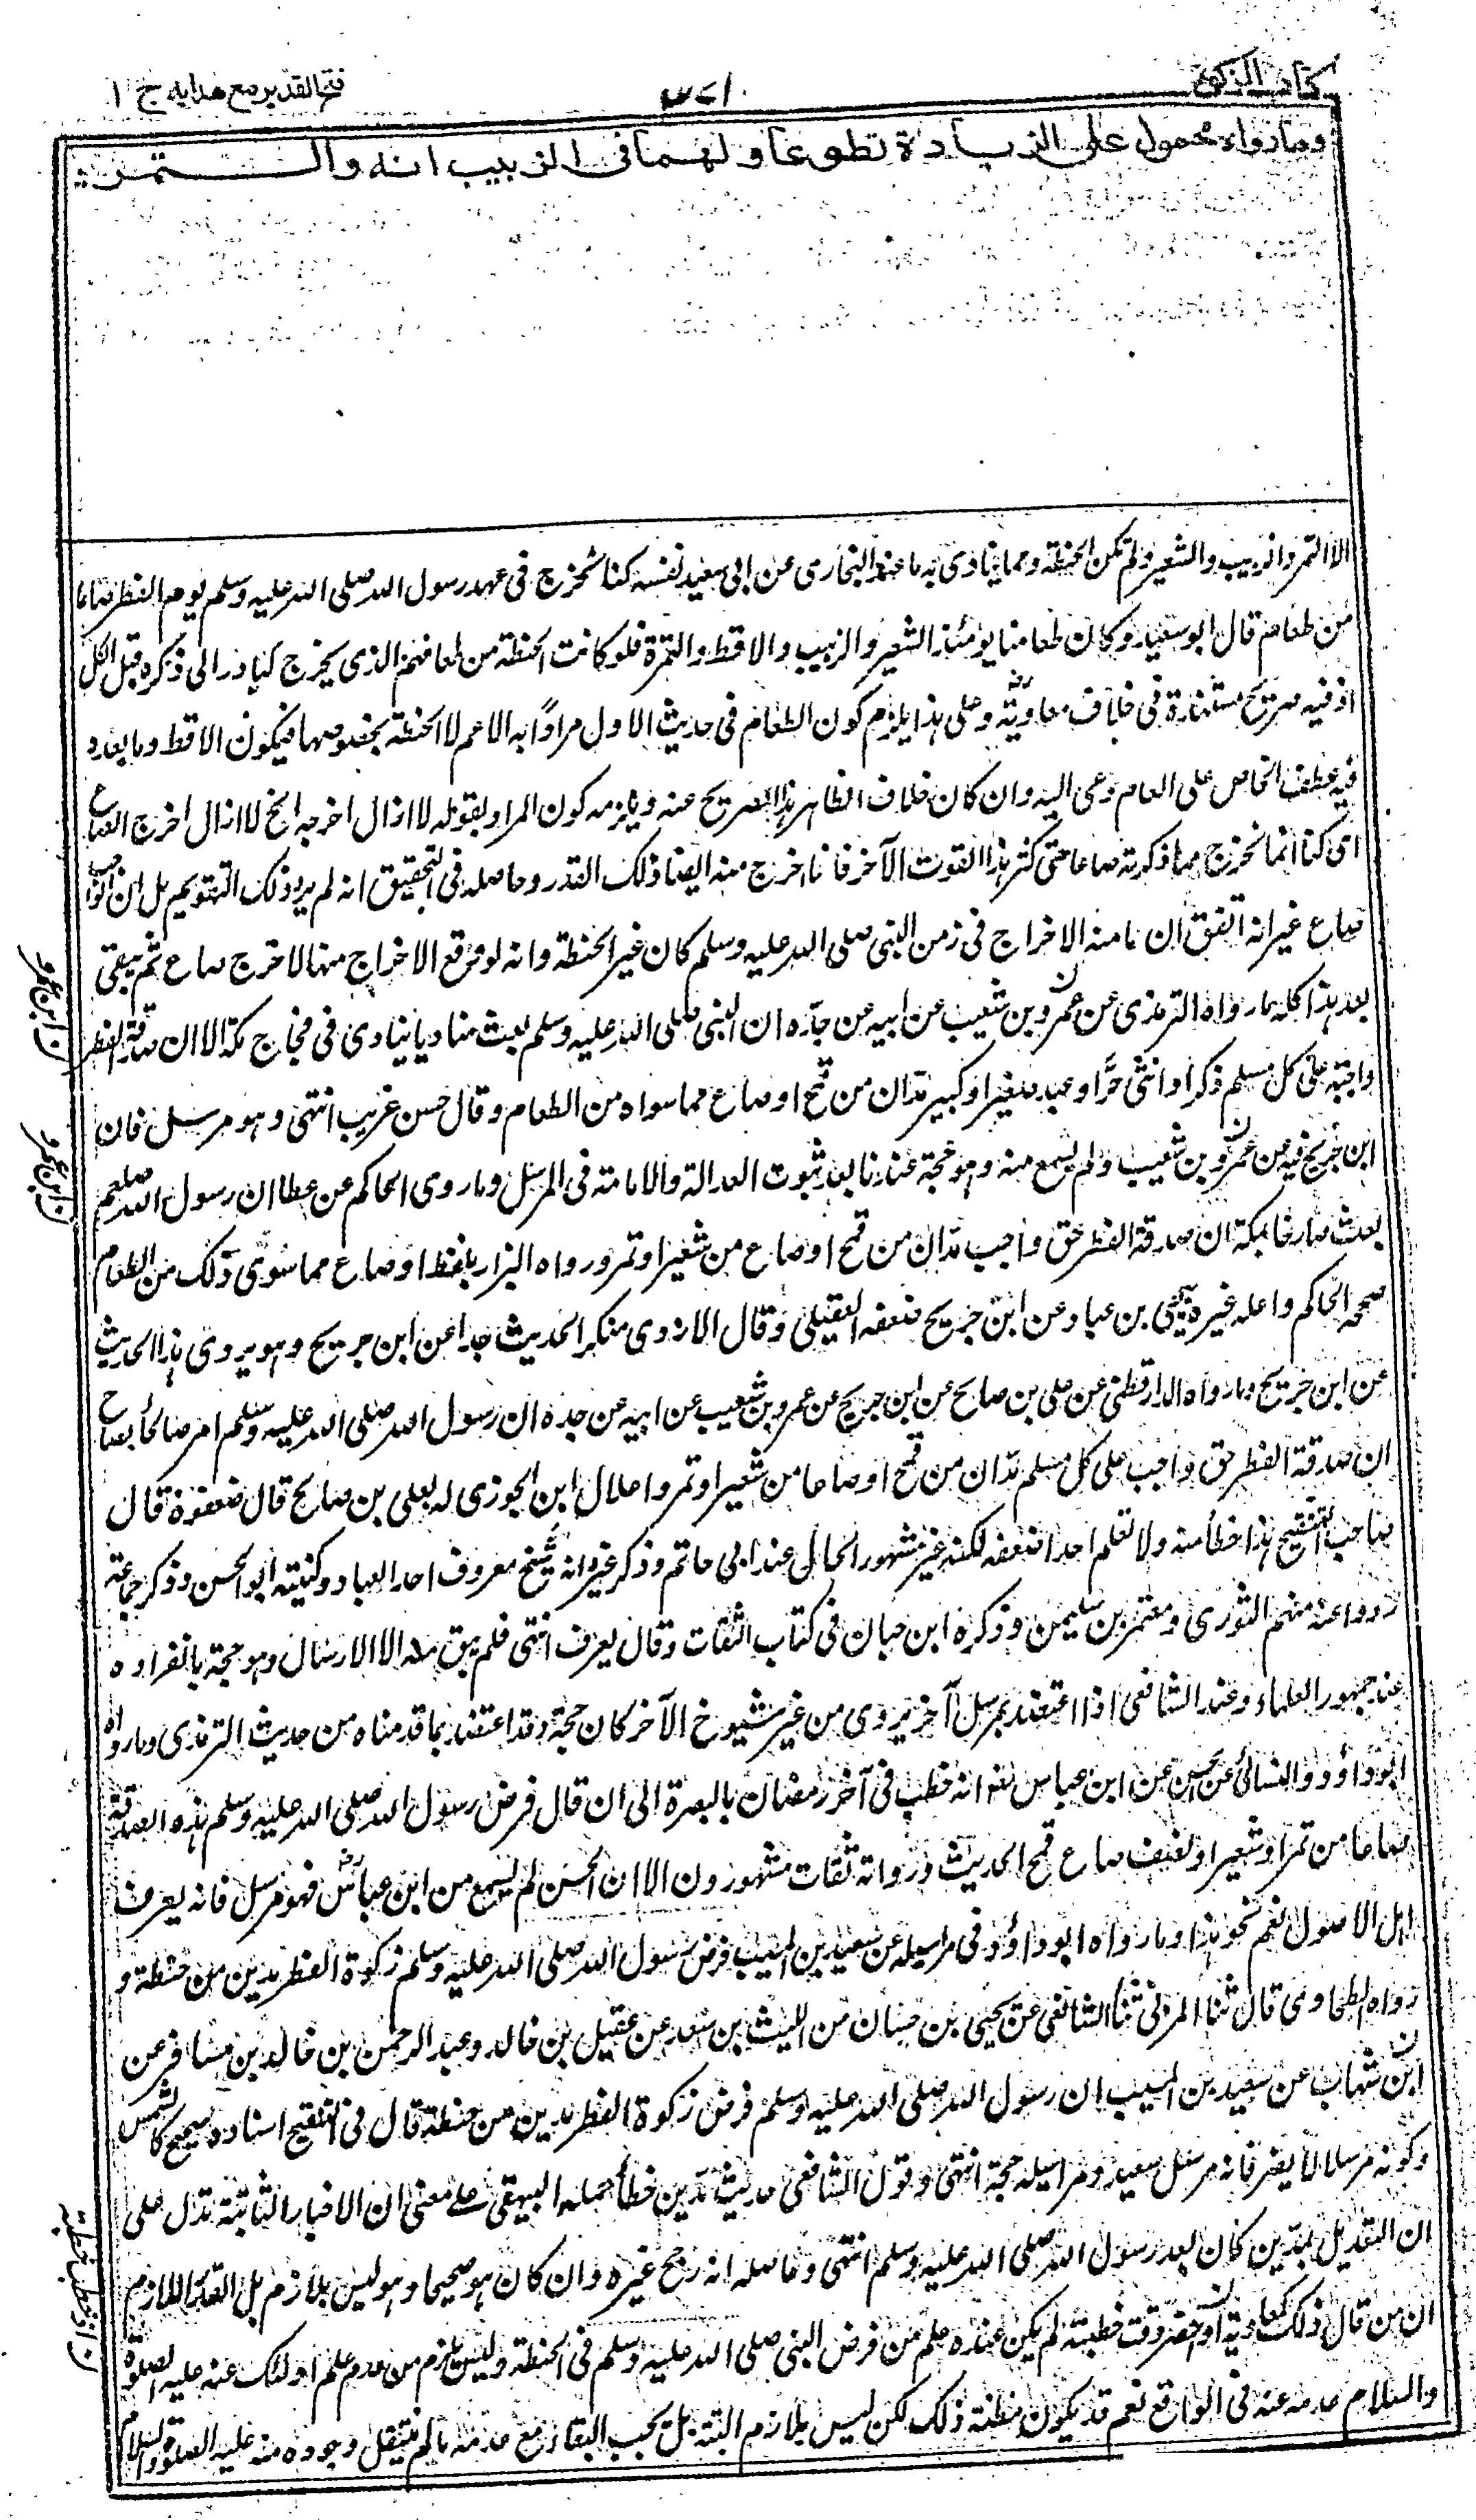 كتاب الزكوة
٣٧١
فتح القدير مع هدايه ج ١
وما رواه محمول على الزيادة تطوعا ولهما فى الزبيب انه والتمر
الا التمر والزبيب والشعير ولم تكن الحنطة ومما ينادى به ما عند البخارى عن ابى سعيد نفسه كنا نخرج فى عهد رسول الله صلى الله عليه وسلم يوم الفطر صاعا
من طعام قال ابو سعيد وكان طعامنا يومئذ الشعير والزبيب والاقط والتمر فلو كانت الحنطة من طعامهم الذى يخرج لبادر الى ذكره قبل الكل
اذ فيه صريح مستنده فى خلاف معاوية وعلى هذا يلزم كون الطعام فى حديث الاول مرادا به الاعم لا الحنطة بخصوصها فيكون الاقط وما بعده
فيه عطف الخاص على العام دعى اليه وان كان خلاف الظاهر هذا الصريح عنه ويلزمه كون المراد بقوله لا ازال اخرجه الخ لا ازال اخرج الصاع
اى كنا انما نخرج مما ذكرته صاعا حتى كثر هذا القوت الآخر فانا اخرج منه ايضا ذلك القدر وحاصله فى التحقيق انه لم يرد ذلك التقويم بل ان الواجب
صاع غير انه اتفق ان ما منه الاخراج فى زمن النبى صلى الله عليه وسلم كان غير الحنطة وانه لو وقع الاخراج منها لاخرج صاع ثم يبقى
بعد هذا كله ما رواه الترمذى عن عمرو بن شعيب عن ابيه عن جده ان النبى صلى الله عليه وسلم بعث مناديا ينادى فى فجاج مكة الا ان صدقة الفطر
واجبة على كل مسلم ذكر او انثى حر او عبد صغير او كبير مدان من قمح او صاع مما سواه من الطعام وقال حسن غريب انتهى وهو مرسل فان
ابن جريج فيه عن عمرو بن شعيب ولم يسمع منه وهو حجة عندنا بعد ثبوت العدالة والامامة فى المرسل وما روى الحاكم عن عطا ان رسول الله صلعم
بعث صارخا بمكة ان صدقة الفطر حق واجب مدان من قمح او صاع من شعير او تمر ورواه البزار بلفظ او صاع مما سوى ذلك من الطعام
صححه الحاكم واعله غيره بيحيى بن عباد عن ابن جريج ضعفه العقيلى وقال الازدى منكر الحديث جدا عن ابن جريج وهو يروى هذا الحديث
عن ابن جريج وما رواه الدارقطنى عن على بن صالح عن ابن جريج عن عمرو بن شعيب عن ابيه عن جده ان رسول الله صلى الله عليه وسلم امر صائحا بصاح
ان صدقة الفطر حق واجب على كل مسلم مدان من قمح او صاعا من شعير او تمر واعلال ابن الجوزى له بعلى بن صالح قال ضعفوه قال
صاحب التنقيح هذا خطأ منه ولا نعلم احدا ضعفه لكنه غير مشهور الحال عند ابى حاتم وذكر غيره انه شيخ معروف احد العباد وكنيته ابو الحسن وذكر جماعة
رووا عنه منهم الثورى ومعتمر بن سليمن وذكره ابن حبان فى كتاب الثقات وقال يعرف انتهى فلم يبق فيه الا الارسال وهو حجة بانفراده
عند جمهور العلماء وعند الشافعى اذا اعتضد بمرسل آخر يروى من غير شيوخ الآخر كان حجة وقد اعتضد بما قدمناه من حديث الترمذى وما رواه
ابو داؤد والنسائى عن الحسن عن ابن عباس رض انه خطب فى آخر رمضان بالبصرة الى ان قال فرض رسول الله صلى الله عليه وسلم هذه الصدقة
صاعا من تمر او شعير او نصف صاع قمح الحديث ورواته ثقات مشهورون الا ان الحسن لم يسمع من ابن عباس رض فهو مرسل فانه يعرف
اهل الاصول نعم نحو هذا وما رواه ابو داؤد فى مراسيله عن سعيد بن المسيب فرض رسول الله صلى الله عليه وسلم زكوة الفطر مدين من حنطة و
رواه الطحاوى قال ثنا المزنى ثنا الشافعى عن يحيى بن حسان عن الليث بن سعد عن عقيل بن خالد وعبد الرحمن بن خالد بن مسافر عن
ابن شهاب عن سعيد بن المسيب ان رسول الله صلى الله عليه وسلم فرض زكوة الفطر مدين من حنطة قال فى التنقيح اسناده صحيح كالشمس
وكونه مرسلا لا يضر فانه مرسل سعيد ومراسيله حجة انتهى وقول الشافعى حديث مدين خطأ حمله البيهقى على معنى ان الاخبار الثابتة تدل على
ان التعديل بمدين كان بعد رسول الله صلى الله عليه وسلم انتهى وحاصله انه رجح غيره وان كان هو صحيحا وهو ليس بلازم بل القدر اللازم
ان من قال ذلك كمعاوية او حضر وقت خطبته لم يكن عنده علم من فرض النبى صلى الله عليه وسلم فى الحنطة وليس يلزم من عدم علم اولئك عنه عليه الصلوة
والسلام عدمه عنه فى الواقع نعم قد يكون مظنة ذلك لكن ليس بلازم البتة بل يجب البقاء مع عدمه ما لم ينقل وجوده منه عليه الصلوة والسلام
ن ابن عمر
ن ابن عمر